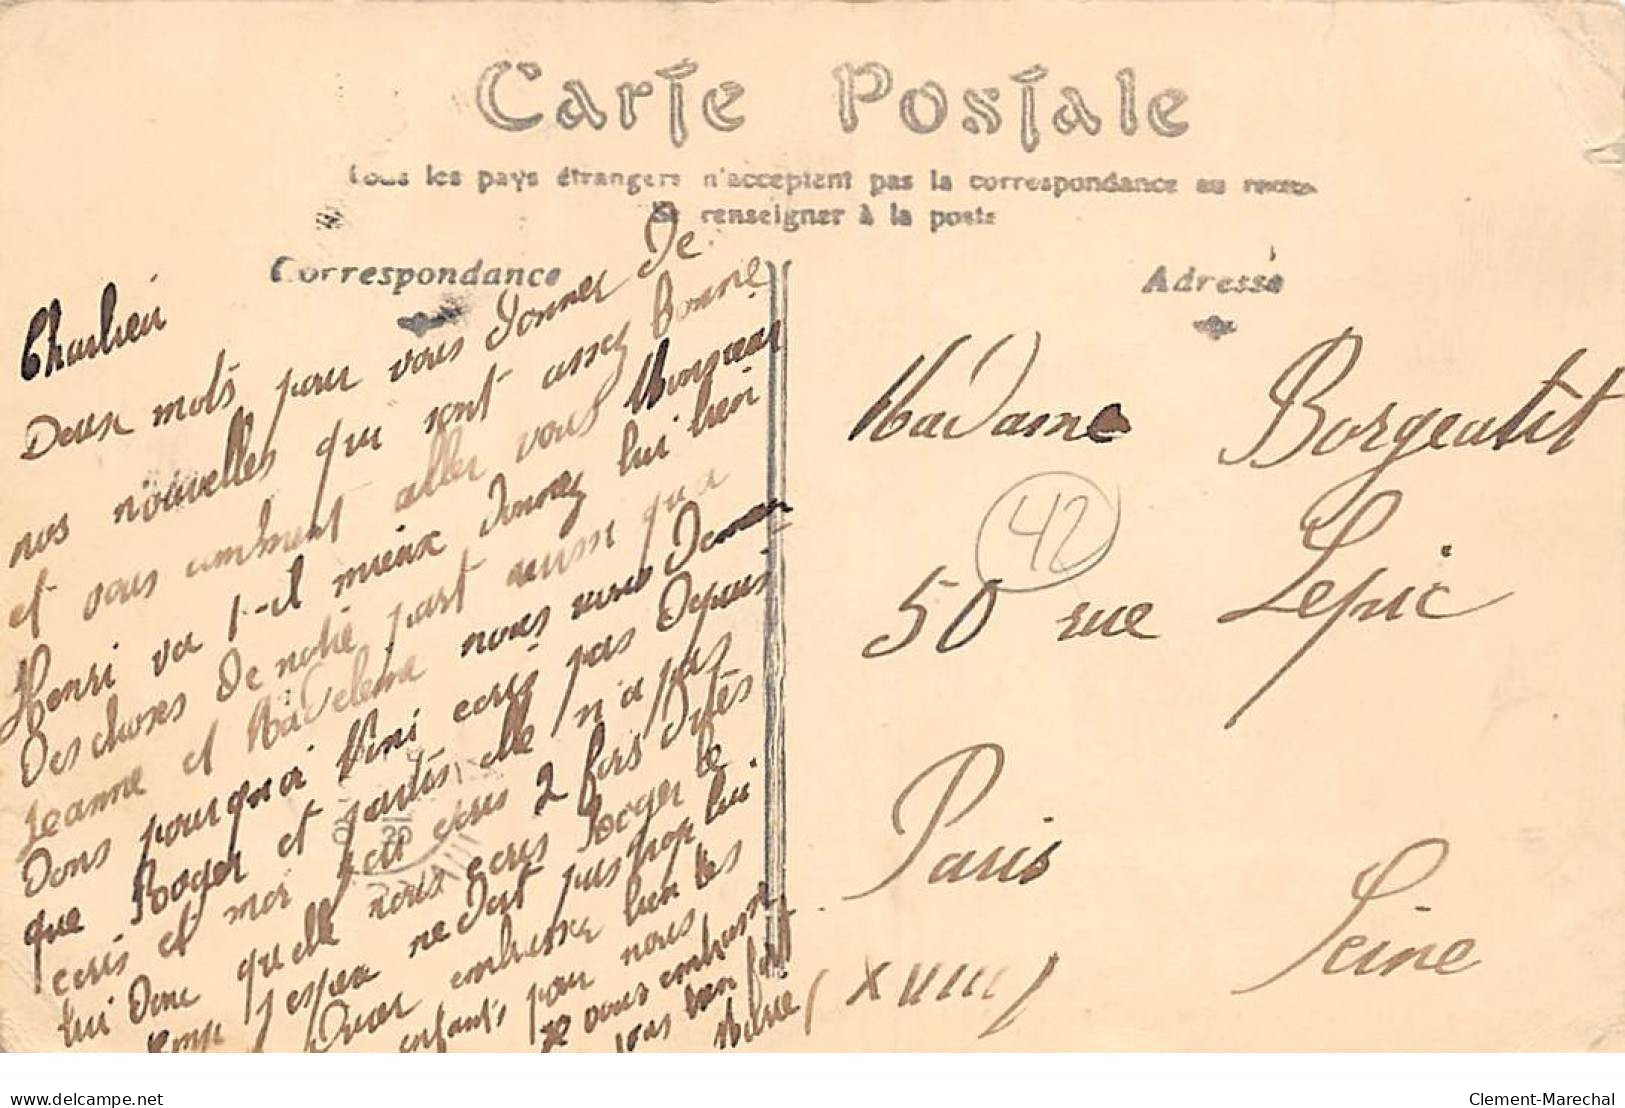 Carte Postale
Tous les pays étrangers n'acceptent pas la correspondance au recto
Se renseigner à la poste
Correspondance
Adresse
Charlieu
Deux mots pour vous donner de
nos nouvelles qui sont assez bonne
et vous comment aller vous Monsieur
Henri va t-il mieux donnez lui bien
Des choses de notre part aussi qu a
Jeanne et Madelene nous nous Deman
Dons pourquoi Nini ecris pas Depuis
que Roger et partis elle n'a pas
ecris et moi j'ai ecris 2 fois Dites
lui Donc quelle nous ecris Roger le
temp J espere ne doit pas trop lui
Durer embrasser bien les
enfants pour nous
Je vous embrasse
tous bien fort
Marie
Madame Borgeatit
42
50 rue Lepic
Paris
Seine
(XVIII)
delcampe.net
Clement-Marechal